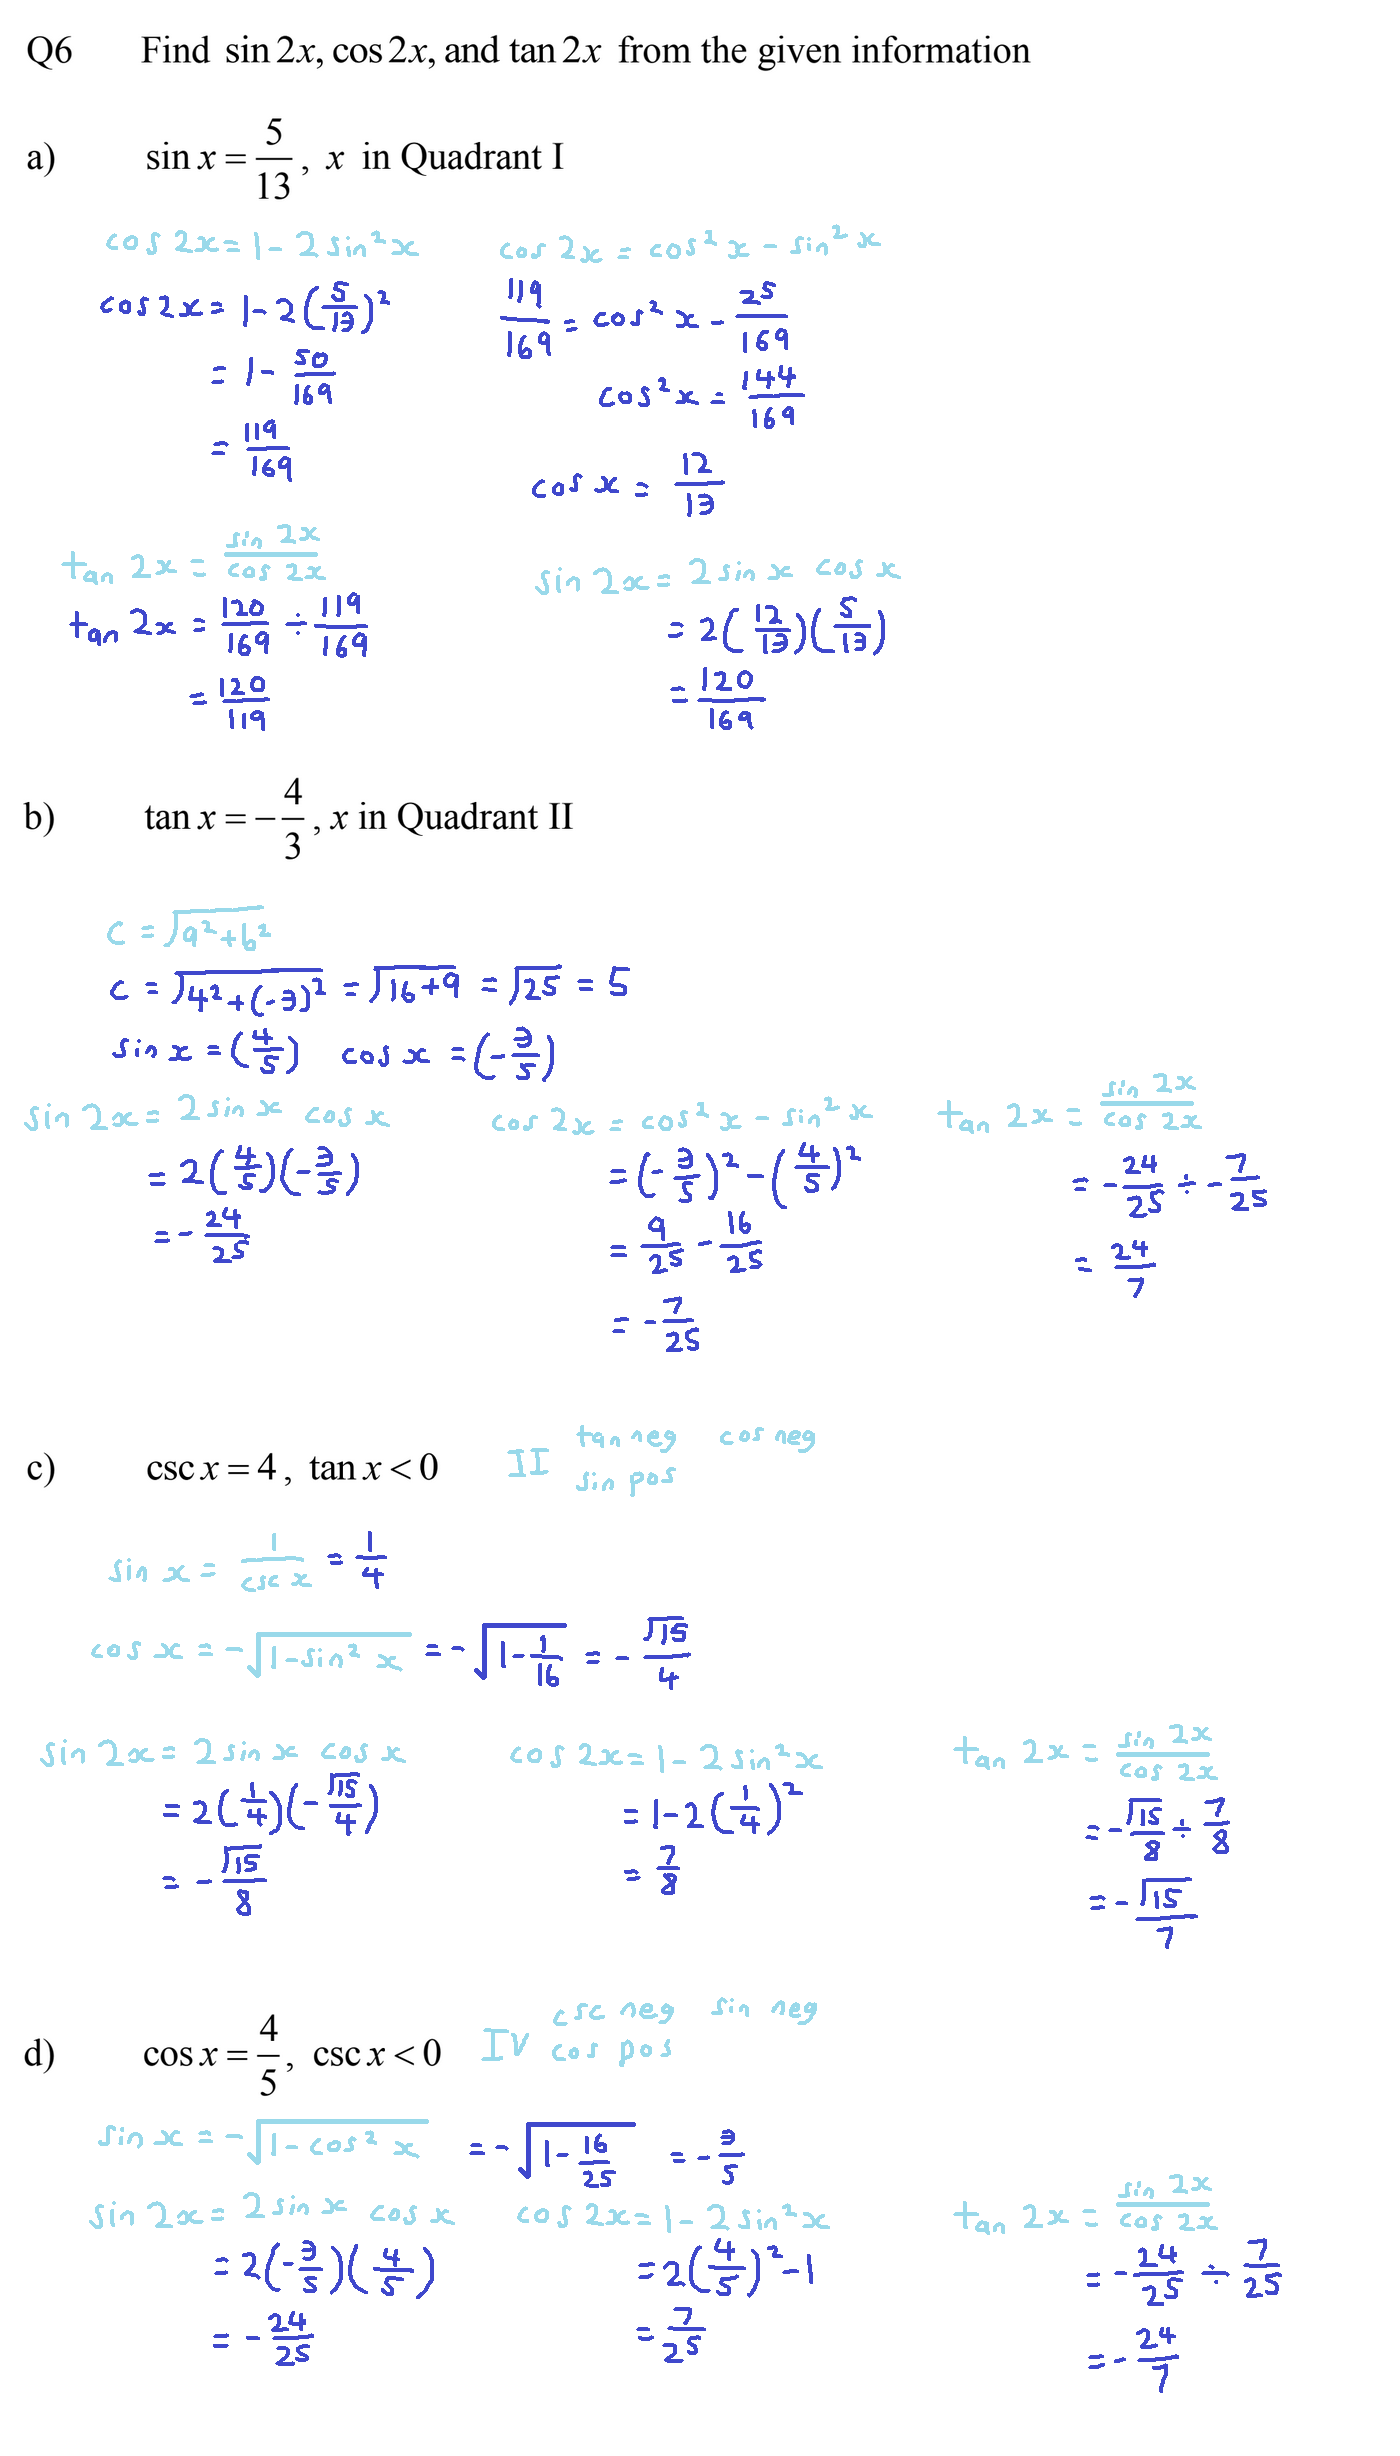 Q6 Find sin 2x, cos 2x, and tan 2x from the given information
a) sin x = 5/13, x in Quadrant I
cos 2x = 1 - 2 sin²x
cos 2x = 1 - 2(5/13)²
= 1 - 50/169
= 119/169
cos 2x = cos²x - sin²x
119/169 = cos²x - 25/169
cos²x = 144/169
cos x = 12/13
tan 2x = sin 2x / cos 2x
tan 2x = 120/169 ÷ 119/169
= 120/119
sin 2x = 2 sin x cos x
= 2(12/13)(5/13)
= 120/169
b) tan x = -4/3, x in Quadrant II
c = √(a²+b²)
c = √(4²+(-3)²) = √(16+9) = √25 = 5
sin x = (4/5) cos x = (-3/5)
sin 2x = 2 sin x cos x
= 2(4/5)(-3/5)
= -24/25
cos 2x = cos²x - sin²x
= (-3/5)² - (4/5)²
= 9/25 - 16/25
= -7/25
tan 2x = sin 2x / cos 2x
= -24/25 ÷ -7/25
= 24/7
c) csc x = 4, tan x < 0 II tan neg cos neg
sin pos
sin x = 1/csc x = 1/4
cos x = -√(1-sin²x) = -√(1-1/16) = -√15/4
sin 2x = 2 sin x cos x
= 2(1/4)(-√15/4)
= -√15/8
cos 2x = 1 - 2 sin²x
= 1-2(1/4)²
= 7/8
tan 2x = sin 2x / cos 2x
= -√15/8 ÷ 7/8
= -√15/7
d) cos x = 4/5, csc x < 0 IV csc neg sin neg
cos pos
sin x = -√(1-cos²x) = -√(1-16/25) = -3/5
sin 2x = 2 sin x cos x
= 2(-3/5)(4/5)
= -24/25
cos 2x = 1 - 2 sin²x
= 2(4/5)²-1
= 7/25
tan 2x = sin 2x / cos 2x
= -24/25 ÷ 7/25
= -24/7